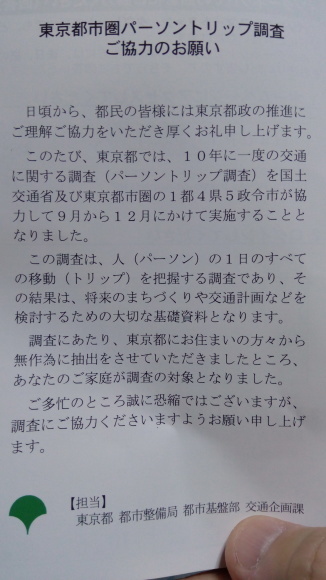 東京都市圏パーソントリップ調査
ご協力のお願い
日頃から、都民の皆様には東京都政の推進に
ご理解ご協力をいただき厚くお礼申し上げます。
このたび、東京都では、１０年に一度の交通
に関する調査（パーソントリップ調査）を国土
交通省及び東京都市圏の１都４県５政令市が協
力して９月から１２月にかけて実施することと
なりました。
この調査は、人（パーソン）の１日のすべて
の移動（トリップ）を把握する調査であり、そ
の結果は、将来のまちづくりや交通計画などを
検討するための大切な基礎資料となります。
調査にあたり、東京都にお住まいの方々から
無作為に抽出をさせていただきましたところ、
あなたのご家庭が調査の対象となりました。
ご多忙のところ誠に恐縮ではございますが、
調査にご協力くださいますようお願い申し上げ
ます。
【担当】
東京都 都市整備局 都市基盤部 交通企画課